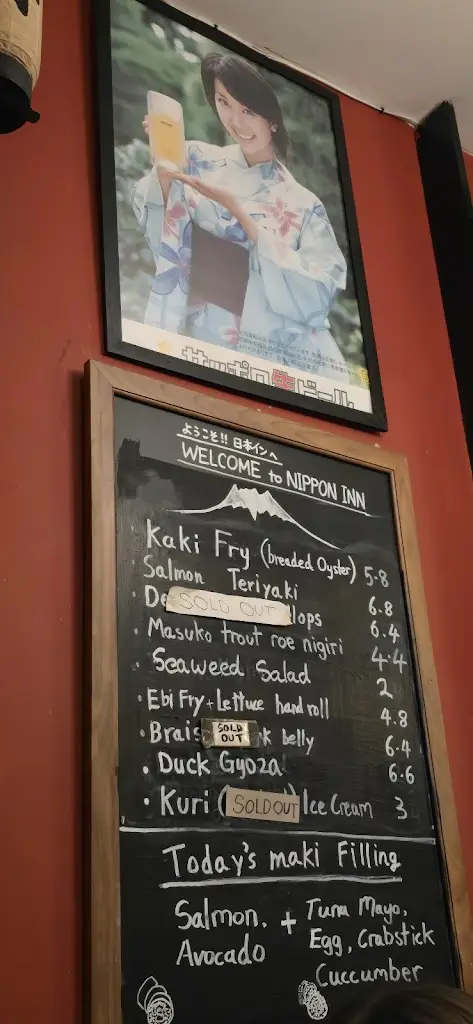 サッポロ生ビール
ようこそ!! 日本インへ
WELCOME to NIPPON INN
Kaki Fry (breaded Oyster) 5.8
Salmon Teriyaki 6.8
· De SOLD OUT llops 6.4
· Masuko trout roe nigiri 4.4
· Seaweed Salad 2
· Ebi Fry + Lettuce hand roll 4.8
· Brais SOLD OUT k belly 6.4
· Duck Gyoza 6.6
· Kuri ( SOLD OUT ) Ice Cream 3
Today's maki Filling
Salmon. + Tuna Mayo,
Avocado Egg, Crabstick
Cuccumber